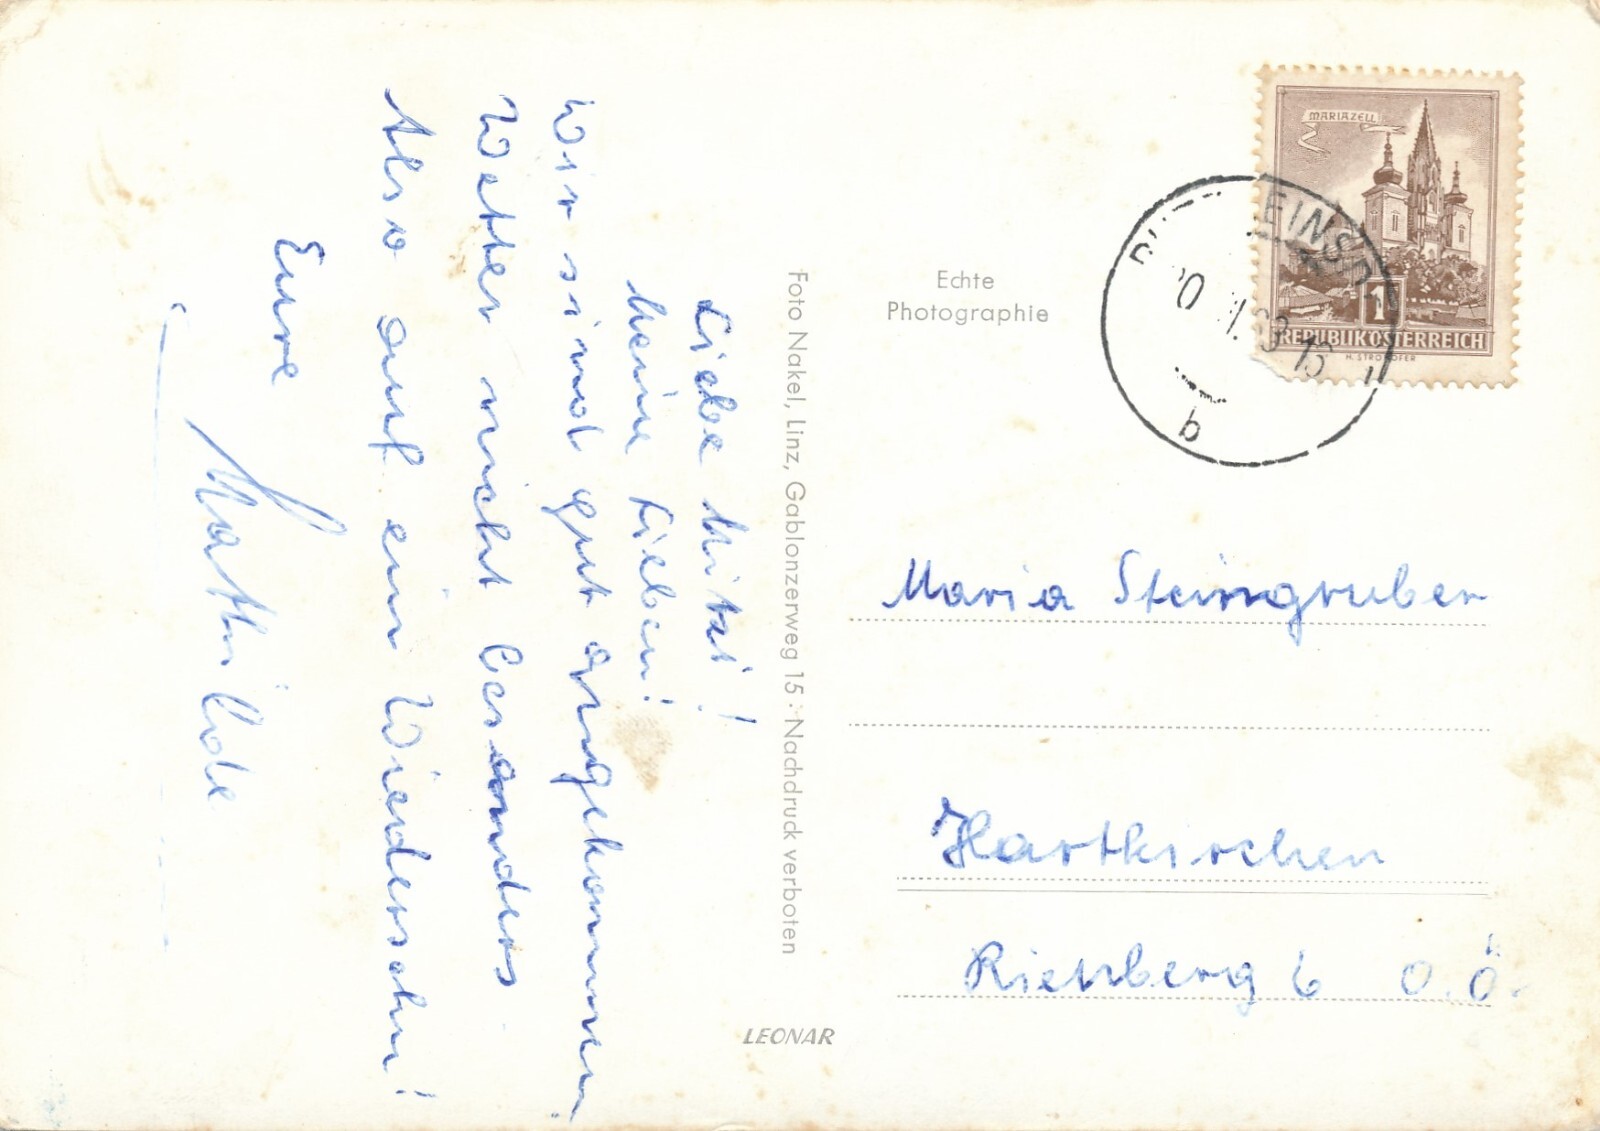 Liebe Mitzi!
Meine Lieben!
Wir sind gut angekommen.
Wetter nicht besonders.
Also auf ein Wiedersehn!
Eure
Mathilde
Foto Nakel, Linz, Gablonzerweg 15 · Nachdruck verboten
LEONAR
Echte
Photographie
MARIAZELL
1
REPUBLIK ÖSTERREICH
H. STROHOFER
b
Maria Steingruber
Hartkirchen
6 O.Ö.